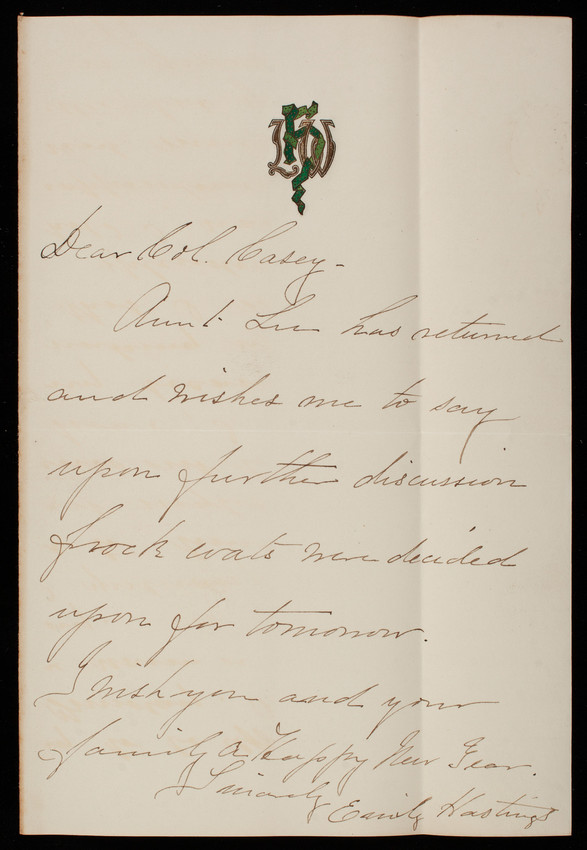 Dear Col. Casey -
Aunt Lu has returned
and wishes me to say
upon further discussion
frock coats were decided
upon for tomorrow.
I wish you and your
family a Happy New Year.
Sincerely
Emily Hastings